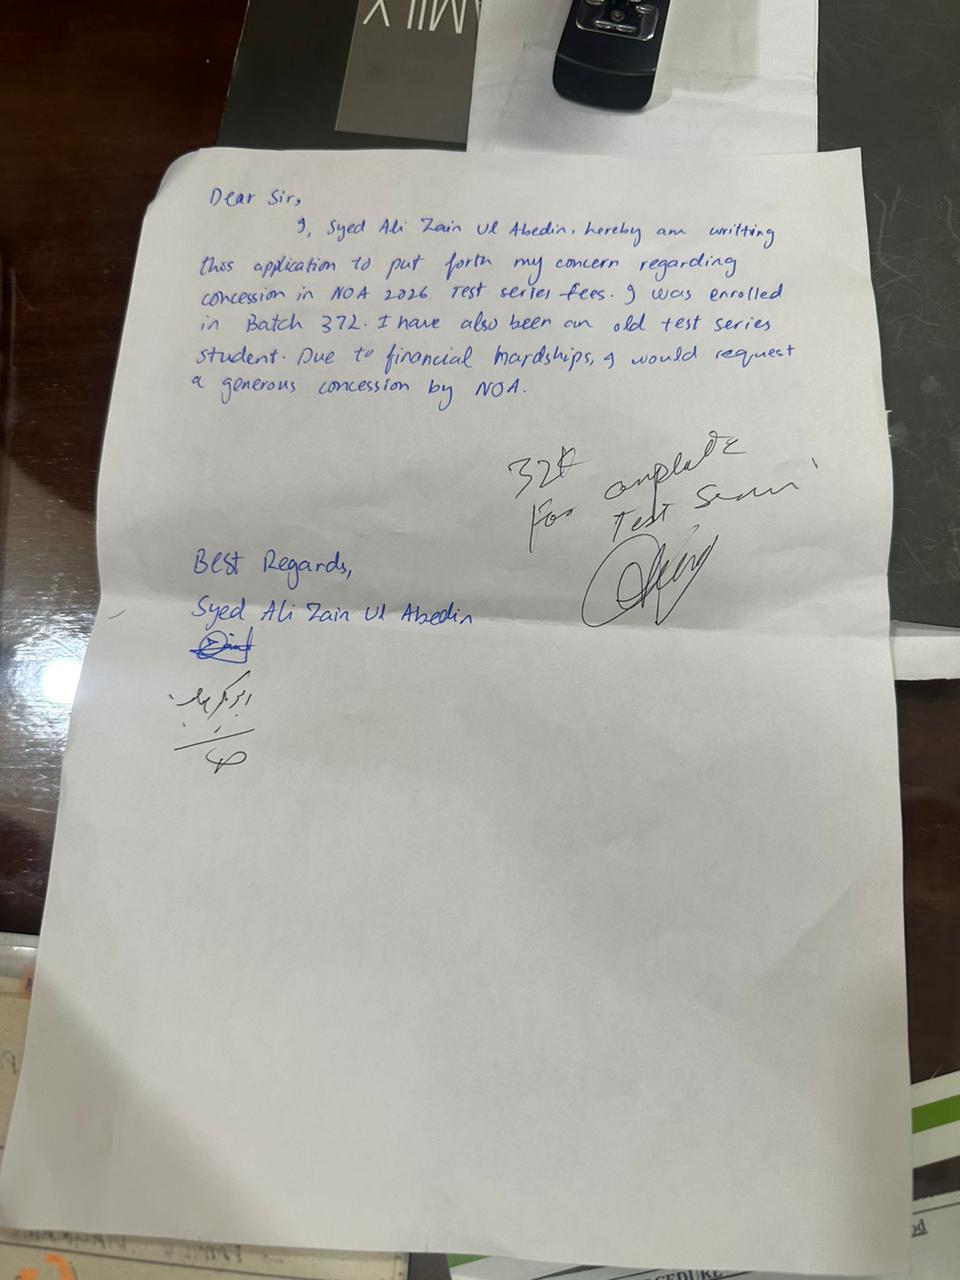 AMILY
Dear Sir,
I, Syed Ali Zain Ul Abedin, hereby am writting
this application to put forth my concern regarding
concession in NOA 2026 Test series fees. I was enrolled
in Batch 372. I have also been an old test series
student. Due to financial hardships, I would request
a generous concession by NOA.
32k
For Complete
Test
Best Regards,
Syed Ali Zain Ul Abedin